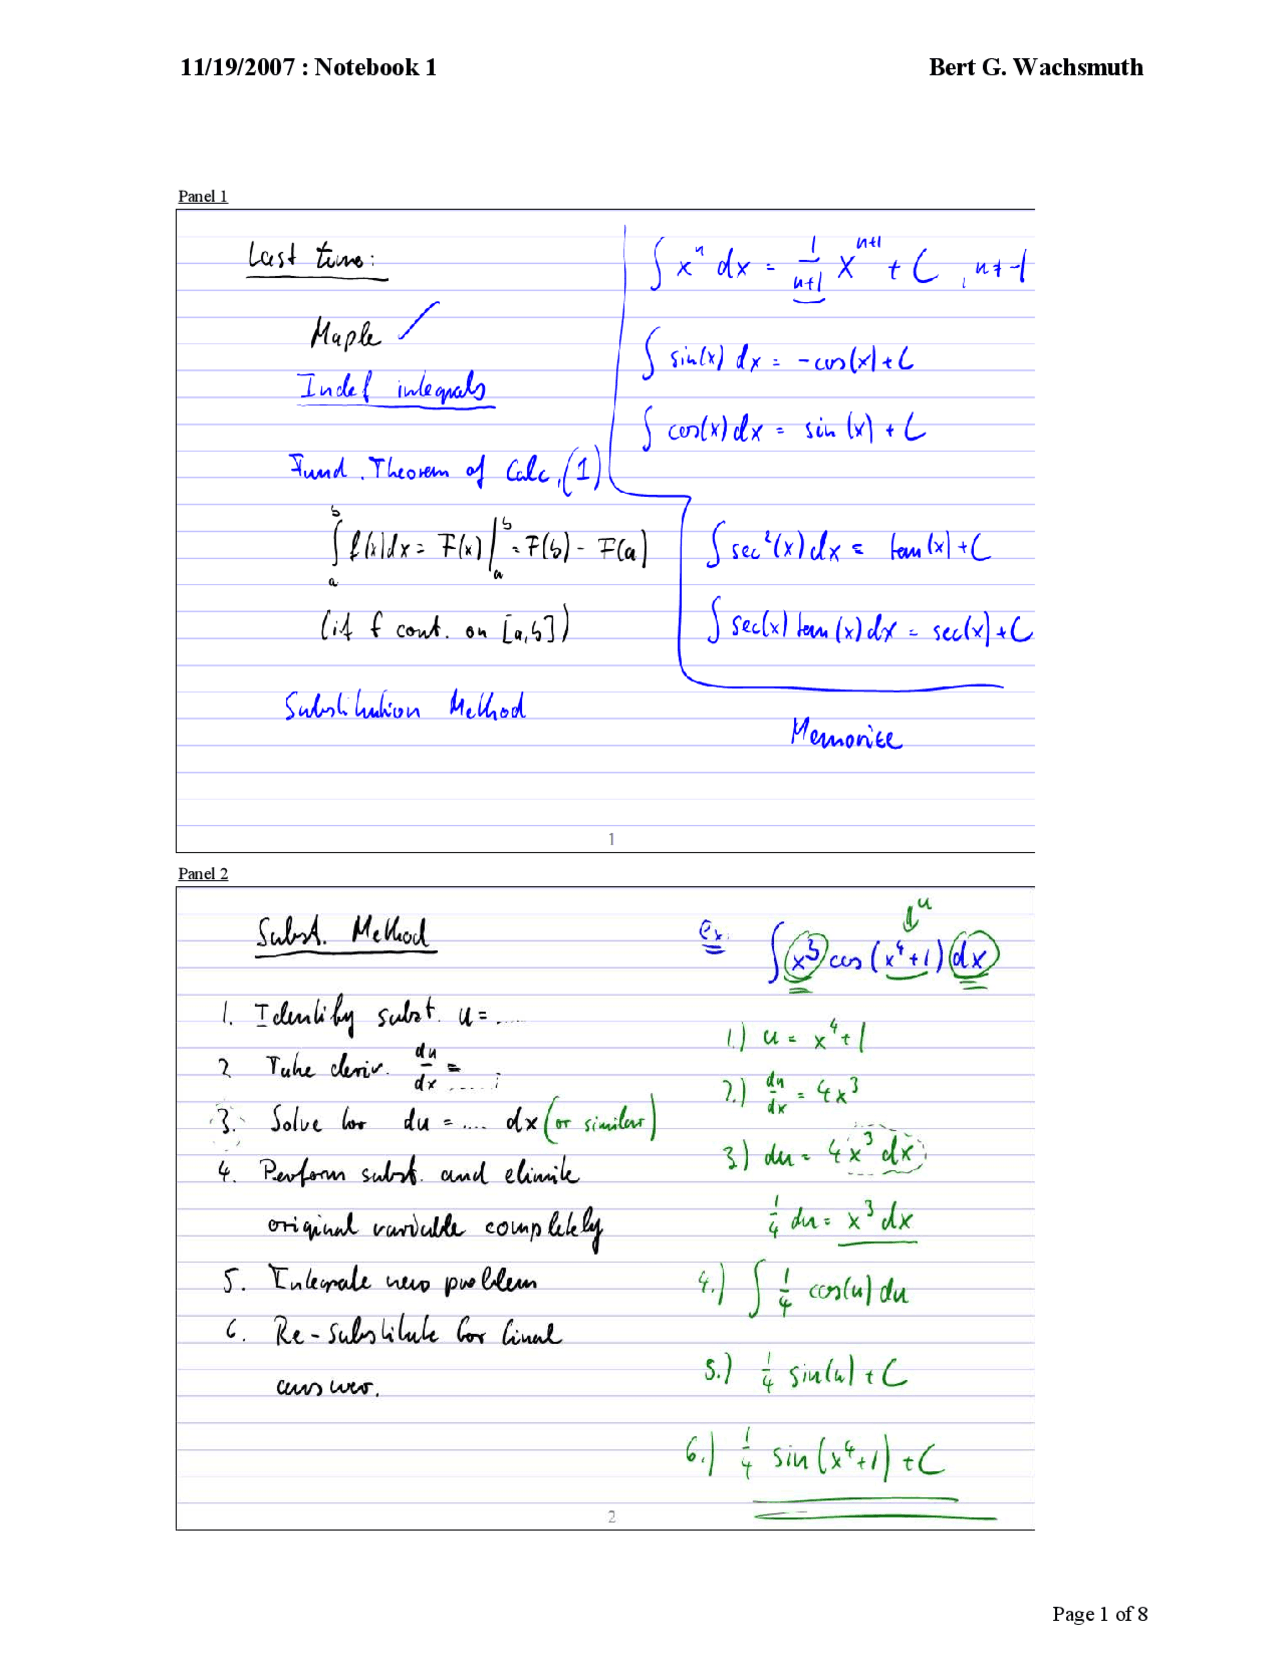 11/19/2007 : Notebook 1 Bert G. Wachsmuth
Panel 1
Last time:
Maple ✓
Indef integrals
Fund. Theorem of Calc, (1)
∫_a^b f(x)dx = F(x)|_a^b = F(b) - F(a)
(if f cont. on [a,b])
Substitution Method
∫ x^n dx = 1/(n+1) x^(n+1) + C, n ≠ -1
∫ sin(x) dx = -cos(x) + C
∫ cos(x) dx = sin(x) + C
∫ sec²(x) dx = tan(x) + C
∫ sec(x) tan(x) dx = sec(x) + C
Memorize
1
Panel 2
Subst. Method
1. Identify subst. u = ....
2 Take deriv. du/dx = .....;
3. Solve for du = .... dx (or similar)
4. Perform subst. and elimite
original variable completely
5. Integrate new problem
6. Re-substitute for final
answer.
u
ex. ∫ x³ cos(x⁴+1) dx
1.) u = x⁴+1
2.) du/dx = 4x³
3) du = 4x³ dx
1/4 du = x³ dx
4.) ∫ 1/4 cos(u) du
5.) 1/4 sin(u) + C
6.) 1/4 sin(x⁴+1) + C
2
Page 1 of 8